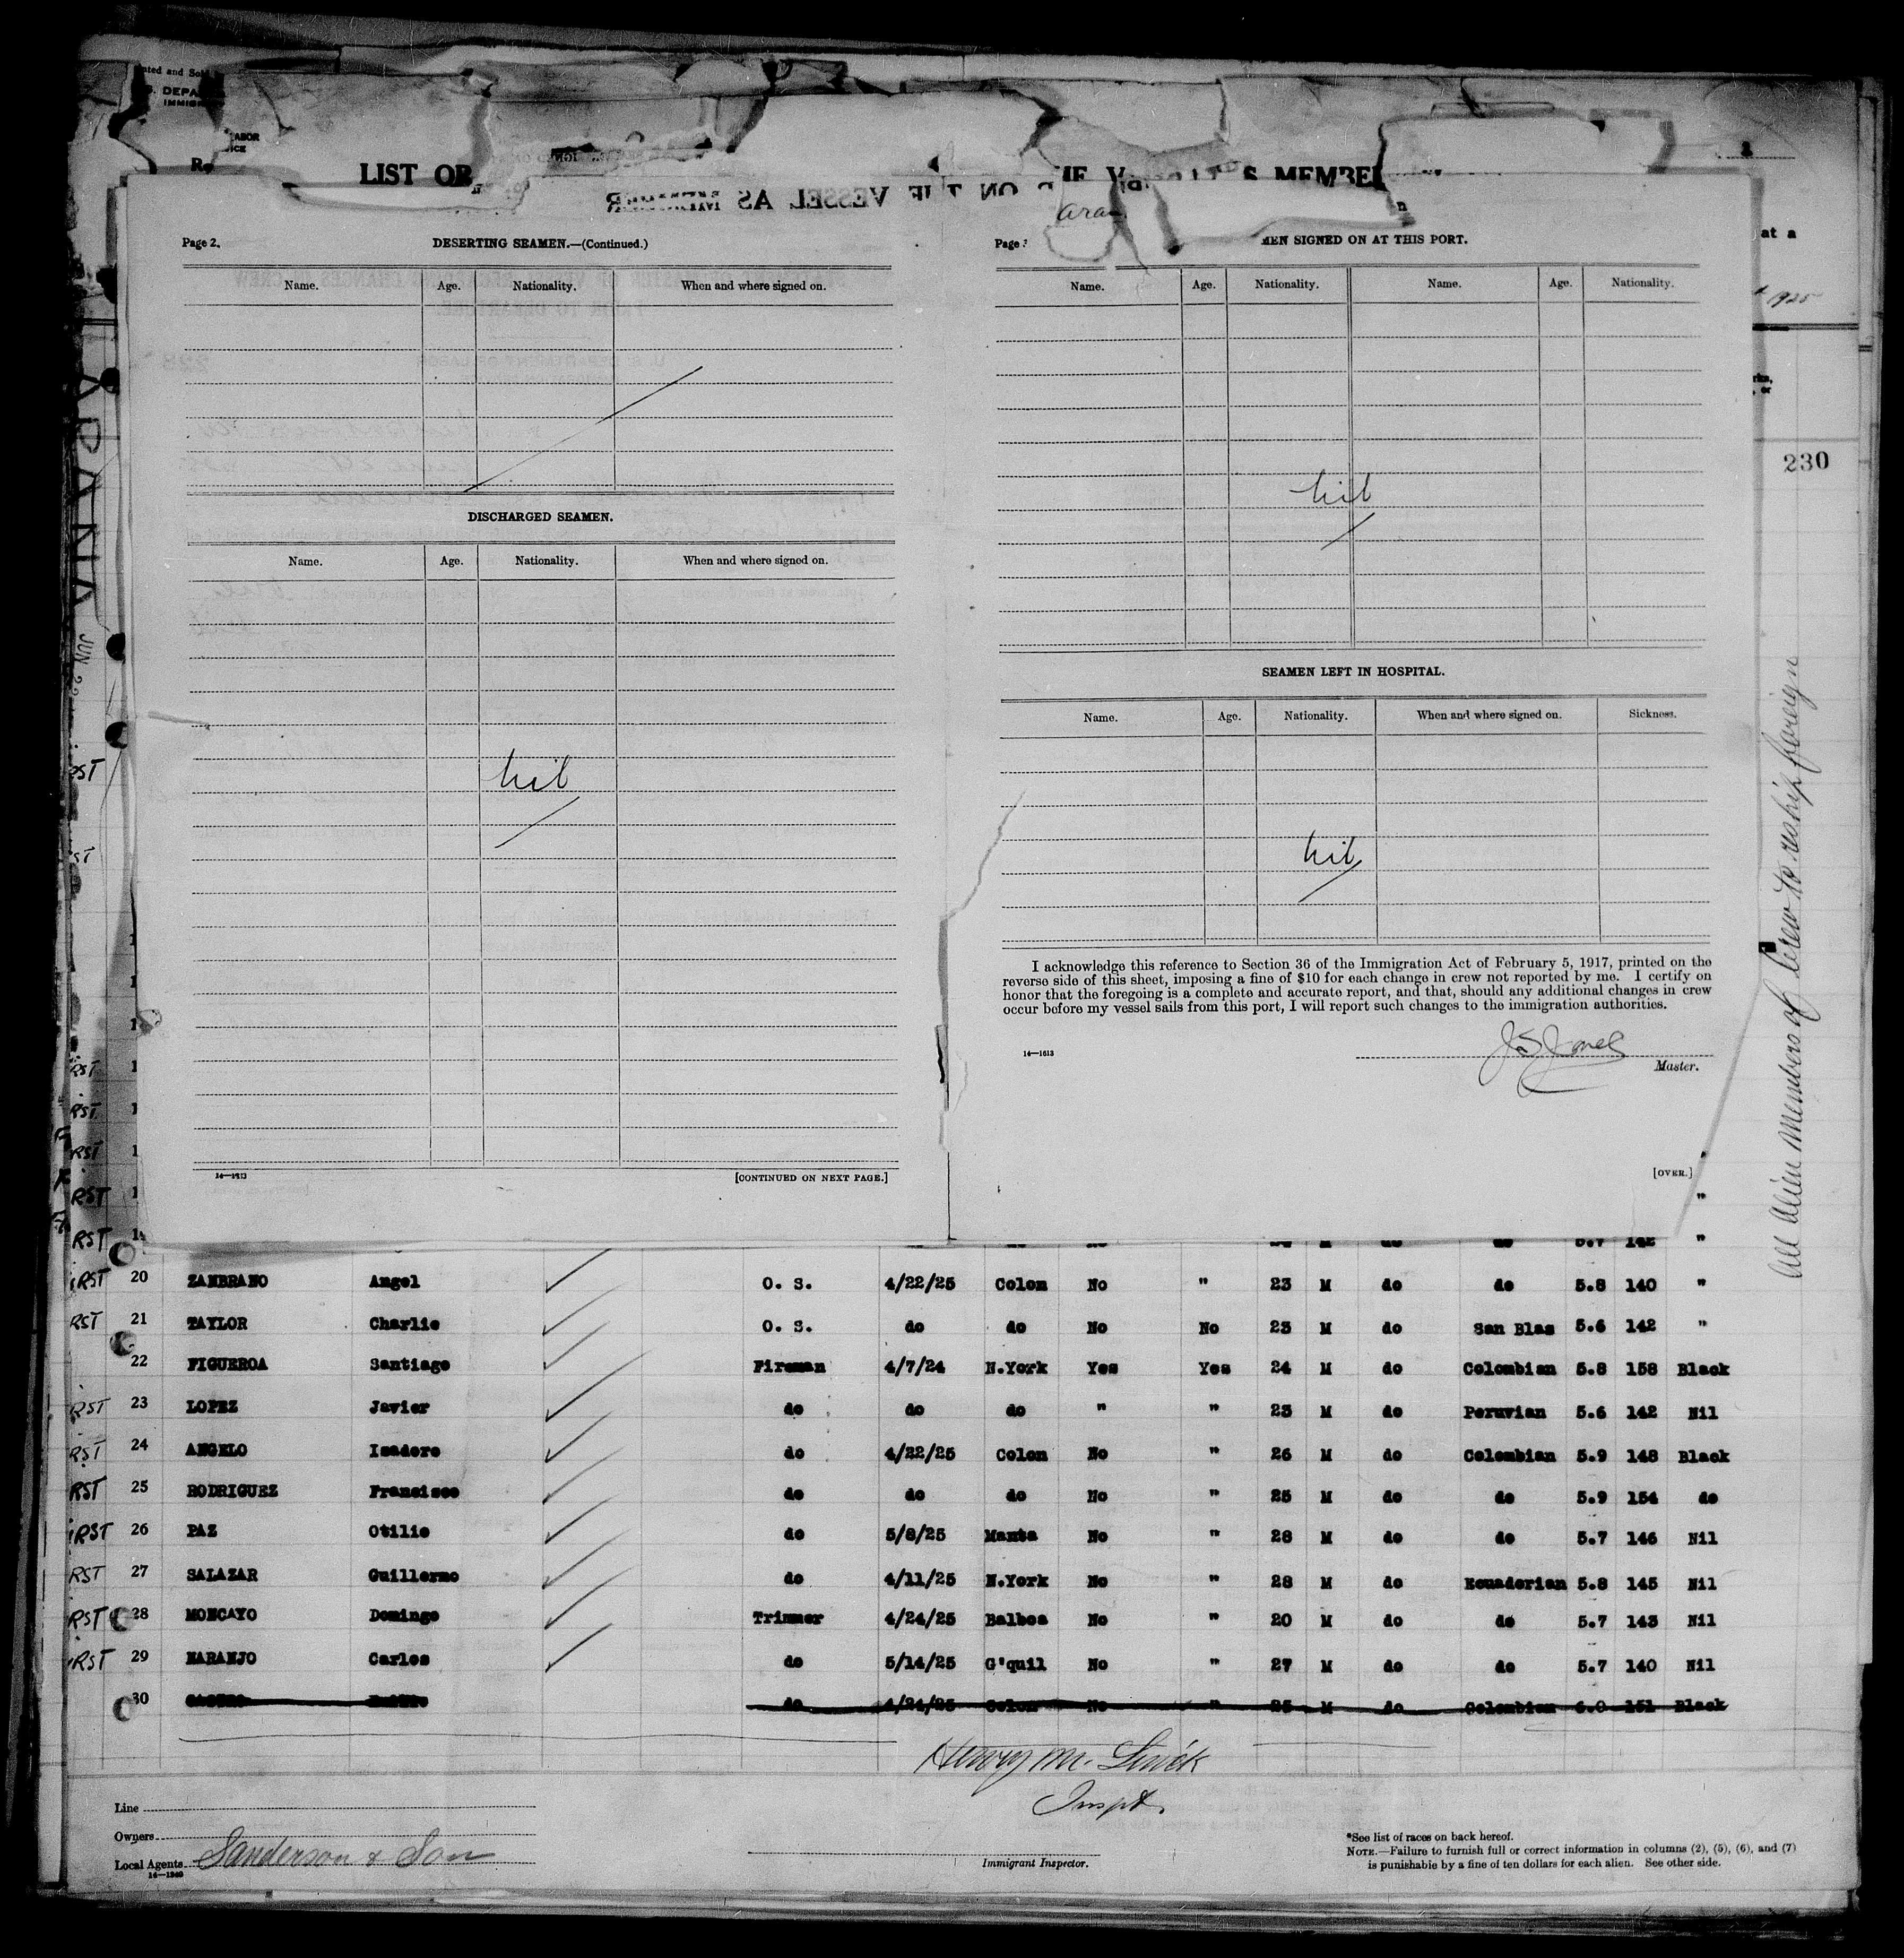 LIST OR
S MEMBER
ara
at a
1925
230
ARANIA JUN 22
All Alien Members of Crew to reship foreign
Page 2. DESERTING SEAMEN.—(Continued.)
Name. Age. Nationality. When and where signed on.
DISCHARGED SEAMEN.
Name. Age. Nationality. When and where signed on.
nil
14—1613 [CONTINUED ON NEXT PAGE.]
Page MEN SIGNED ON AT THIS PORT.
Name. Age. Nationality. Name. Age. Nationality.
nil
SEAMEN LEFT IN HOSPITAL.
Name. Age. Nationality. When and where signed on. Sickness.
nil
I acknowledge this reference to Section 36 of the Immigration Act of February 5, 1917, printed on the
reverse side of this sheet, imposing a fine of $10 for each change in crew not reported by me. I certify on
honor that the foregoing is a complete and accurate report, and that, should any additional changes in crew
occur before my vessel sails from this port, I will report such changes to the immigration authorities.
J S Jones
14—1613 Master.
[OVER.]
RST 20 ZAMBRANO Angel O. S. 4/22/25 Colon No " 23 M do do 5.8 140 "
RST 21 TAYLOR Charlie O. S. do do No No 23 M do San Blas 5.6 142 "
22 FIGUEROA Santiago Fireman 4/7/24 N.York Yes Yes 24 M do Colombian 5.8 158 Black
RST 23 LOPEZ Javier do do do " " 23 M do Peruvian 5.6 142 Nil
RST 24 ANGELO Isadoro do 4/22/25 Colon No " 26 M do Colombian 5.9 148 Black
RST 25 RODRIGUEZ Francisco do do do No " 25 M do do 5.9 154 do
RST 26 PAZ Otilio do 5/8/25 Manta No " 28 M do do 5.7 146 Nil
RST 27 SALAZAR Guillermo do 4/11/25 N.York No " 28 M do Ecuadorian 5.8 145 Nil
RST 28 MONCAYO Domingo Trimmer 4/24/25 Balboa No " 20 M do do 5.7 143 Nil
RST 29 NARANJO Carlos do 5/14/25 G'quil No " 27 M do do 5.7 140 Nil
30 do 4/24/25 Colon No " 25 M do Colombian 6.0 151 Black
Henry M.
Inspt.
Line
Owners
Local Agents Sanderson & Son
14—1240
Immigrant Inspector.
*See list of races on back hereof.
NOTE.—Failure to furnish full or correct information in columns (2), (5), (6), and (7)
is punishable by a fine of ten dollars for each alien. See other side.